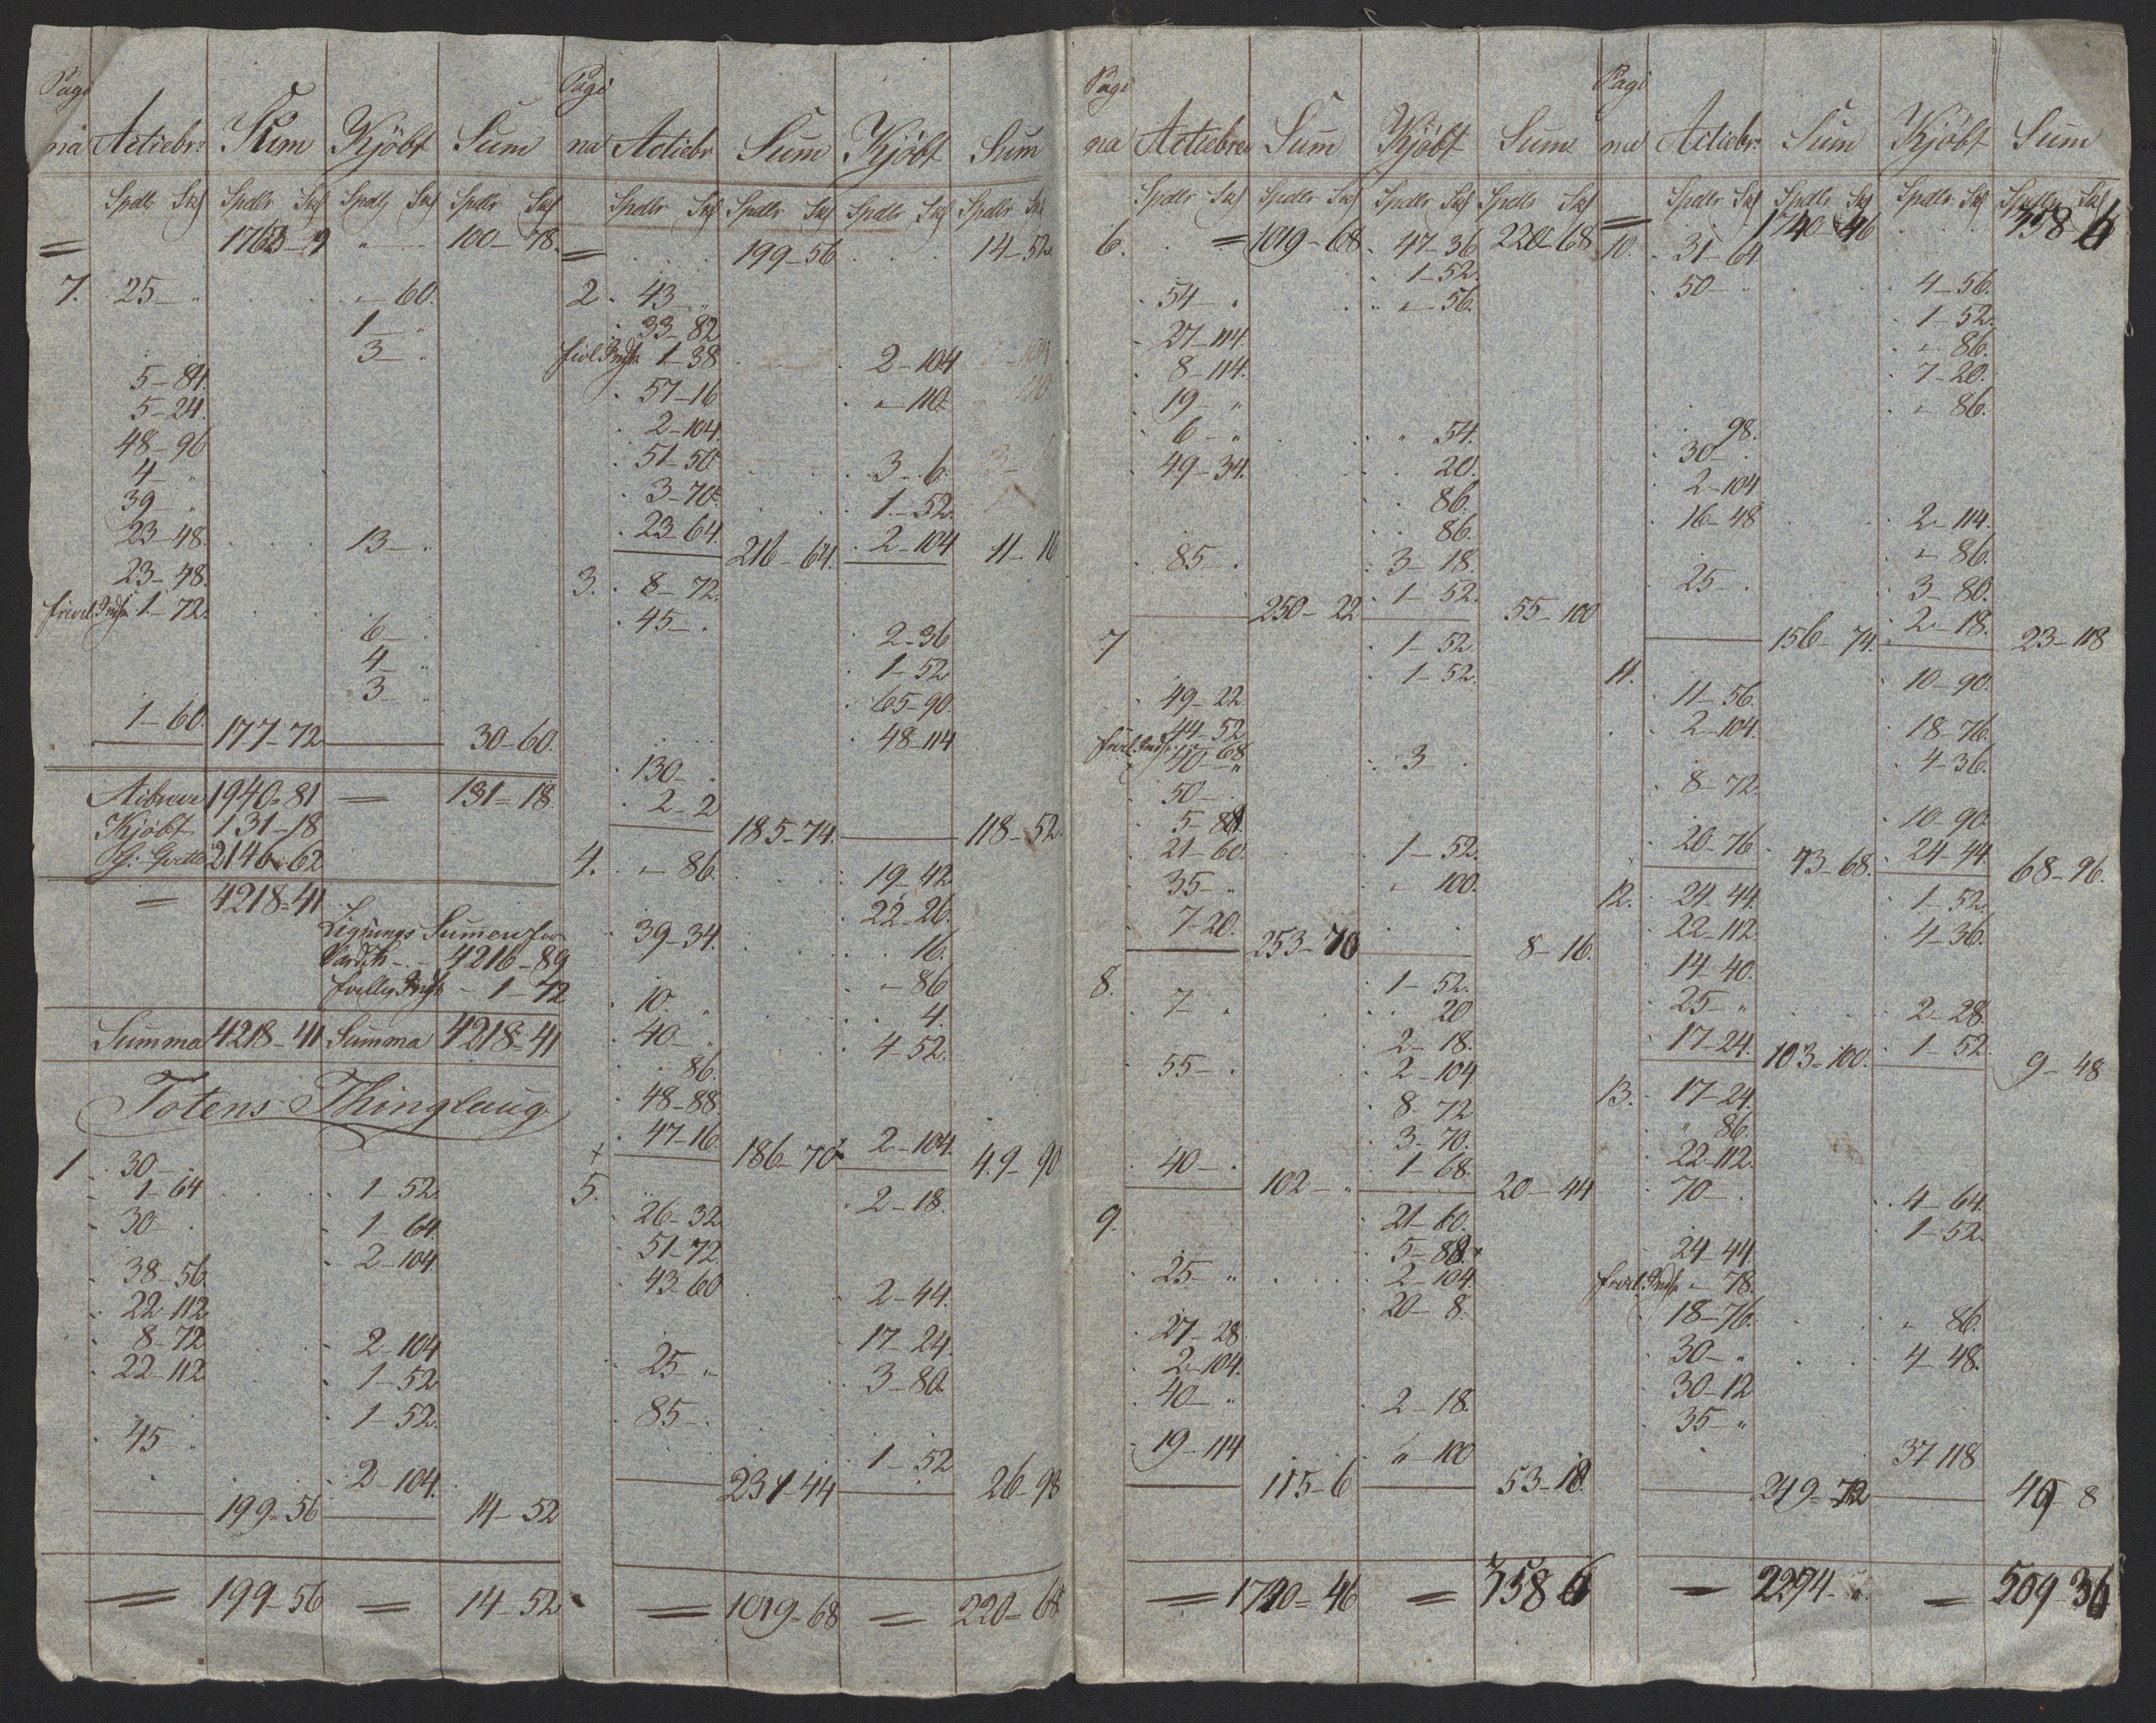 Pagi
na Actiebr: Sum Kjöbt Sum
Spdlr Sk Spdlr Sk Spdlr Sk Spdlr Sk
= 1763-9 " 100-78.
7. 25-" "-60.
1-"
3-"
5-84.
5-24.
48-96
4-"
39-"
23-48. 13-"
23-48.
frivil. Inds. 1-72.
6-"
4-"
3-"
1-60. 177-72 30-60.
1940=81 = 131=18
Kjøbt 131-18
2146-62
= 4218=41
Lignings Sumen for
4216-89
Inds - 1-72
Summa 4218-41 Summa 4218=41
Totens Thinglaug
1. 30-
1-64 1-52.
30- 1-64.
2-104.
38-56.
22-112
8-72 2-104
22-112 1-52
1-52.
45-
2-104.
199-56 14-52
= 199-56 = 14-52
Pagi
na Actiebr Sum Kjöbt Sum
Spdlr Sk Spdlr Sk Spdlr Sk Spdlr Sk
= 199-56 14-52
2. 43-"
33-82
frivl. Inds. 1-38 2-104
57-16 "-110.
2-104.
51-50 3-6.
3-70. 1-52.
23-64. 216-64. 2-104 11-16
3. 8-72.
45-. 2-36
1-52
65-90.
48-114
130-.
2-2
185-74. 118-52.
4. "-86. 19-42
22-26.
39-34. 16.
"-86
10-" 4.
40- 4-52.
86.
48-88.
47-16. 186-70 2-104. 49-90
5. 2-18.
26-32
51-72.
43-60
2-44.
17-24.
25-" 3-80.
85-.
1-52
231-44 26-98
= 1019-68 = 220=68
Pagi
na Actiebre Sum Kjöbt Sum
Spdlr Sk Spdlr Sk Spdlr Sk Spdlr Sk
6. = 1019-68. 47-36 220-68
1-52.
54-" "-56.
27-114.
8-114.
19-"
6-" " 54.
49-34. 20.
86.
86.
85-. 3-18.
250-22 1-52. 55-100
7 1-52.
1-52.
49-22.
44-52
frivil. Inds. " 68
40-" 3
50-
5-88.
21-60. 1-52.
35-" "-100.
7-20.
253-70 8-16.
8. 1-52.
7-" 20
2-18.
55-. 2-104
8-72
3-70.
40-. 1-68.
102-" 20-44
9. 21-60.
5-88.
25-" 2-104.
20-8.
27-28.
2-104.
40-" 2-18.
19-114 "-100
115-6 53-18.
= 1740=46 = 358 6
Pagi
na Actiebr: Sum Kjöbt Sum
Spdlr Sk Spdlr Sk Spdlr Sk Spdlr Sk
= 1740-46 358-6
10. 31-64
50- 4-56.
1-52.
"-86.
7-20.
"-86.
98.
30-
2-104
16-48 2-114.
"-86.
25-. 3-80.
2-18.
156-74. 23-118
11. 10-90.
11-56.
2-104. 18-76.
4-36.
8-72.
10-90.
20-76. 24-44.
43-68. 68-96.
12. 24-44. 1-52.
22-112. 4-36.
14-40.
25-" 2-28.
17-24. 1-52.
103-100. 9-48
13. 17-24.
" 86.
22-112.
70-. 4-64.
1-52.
24-44.
frivil. Inds. "-78.
18-76. "-86.
30-" 4-48.
30-12
35-"
37-118
249-72 49-8
= 2294-" = 509-36